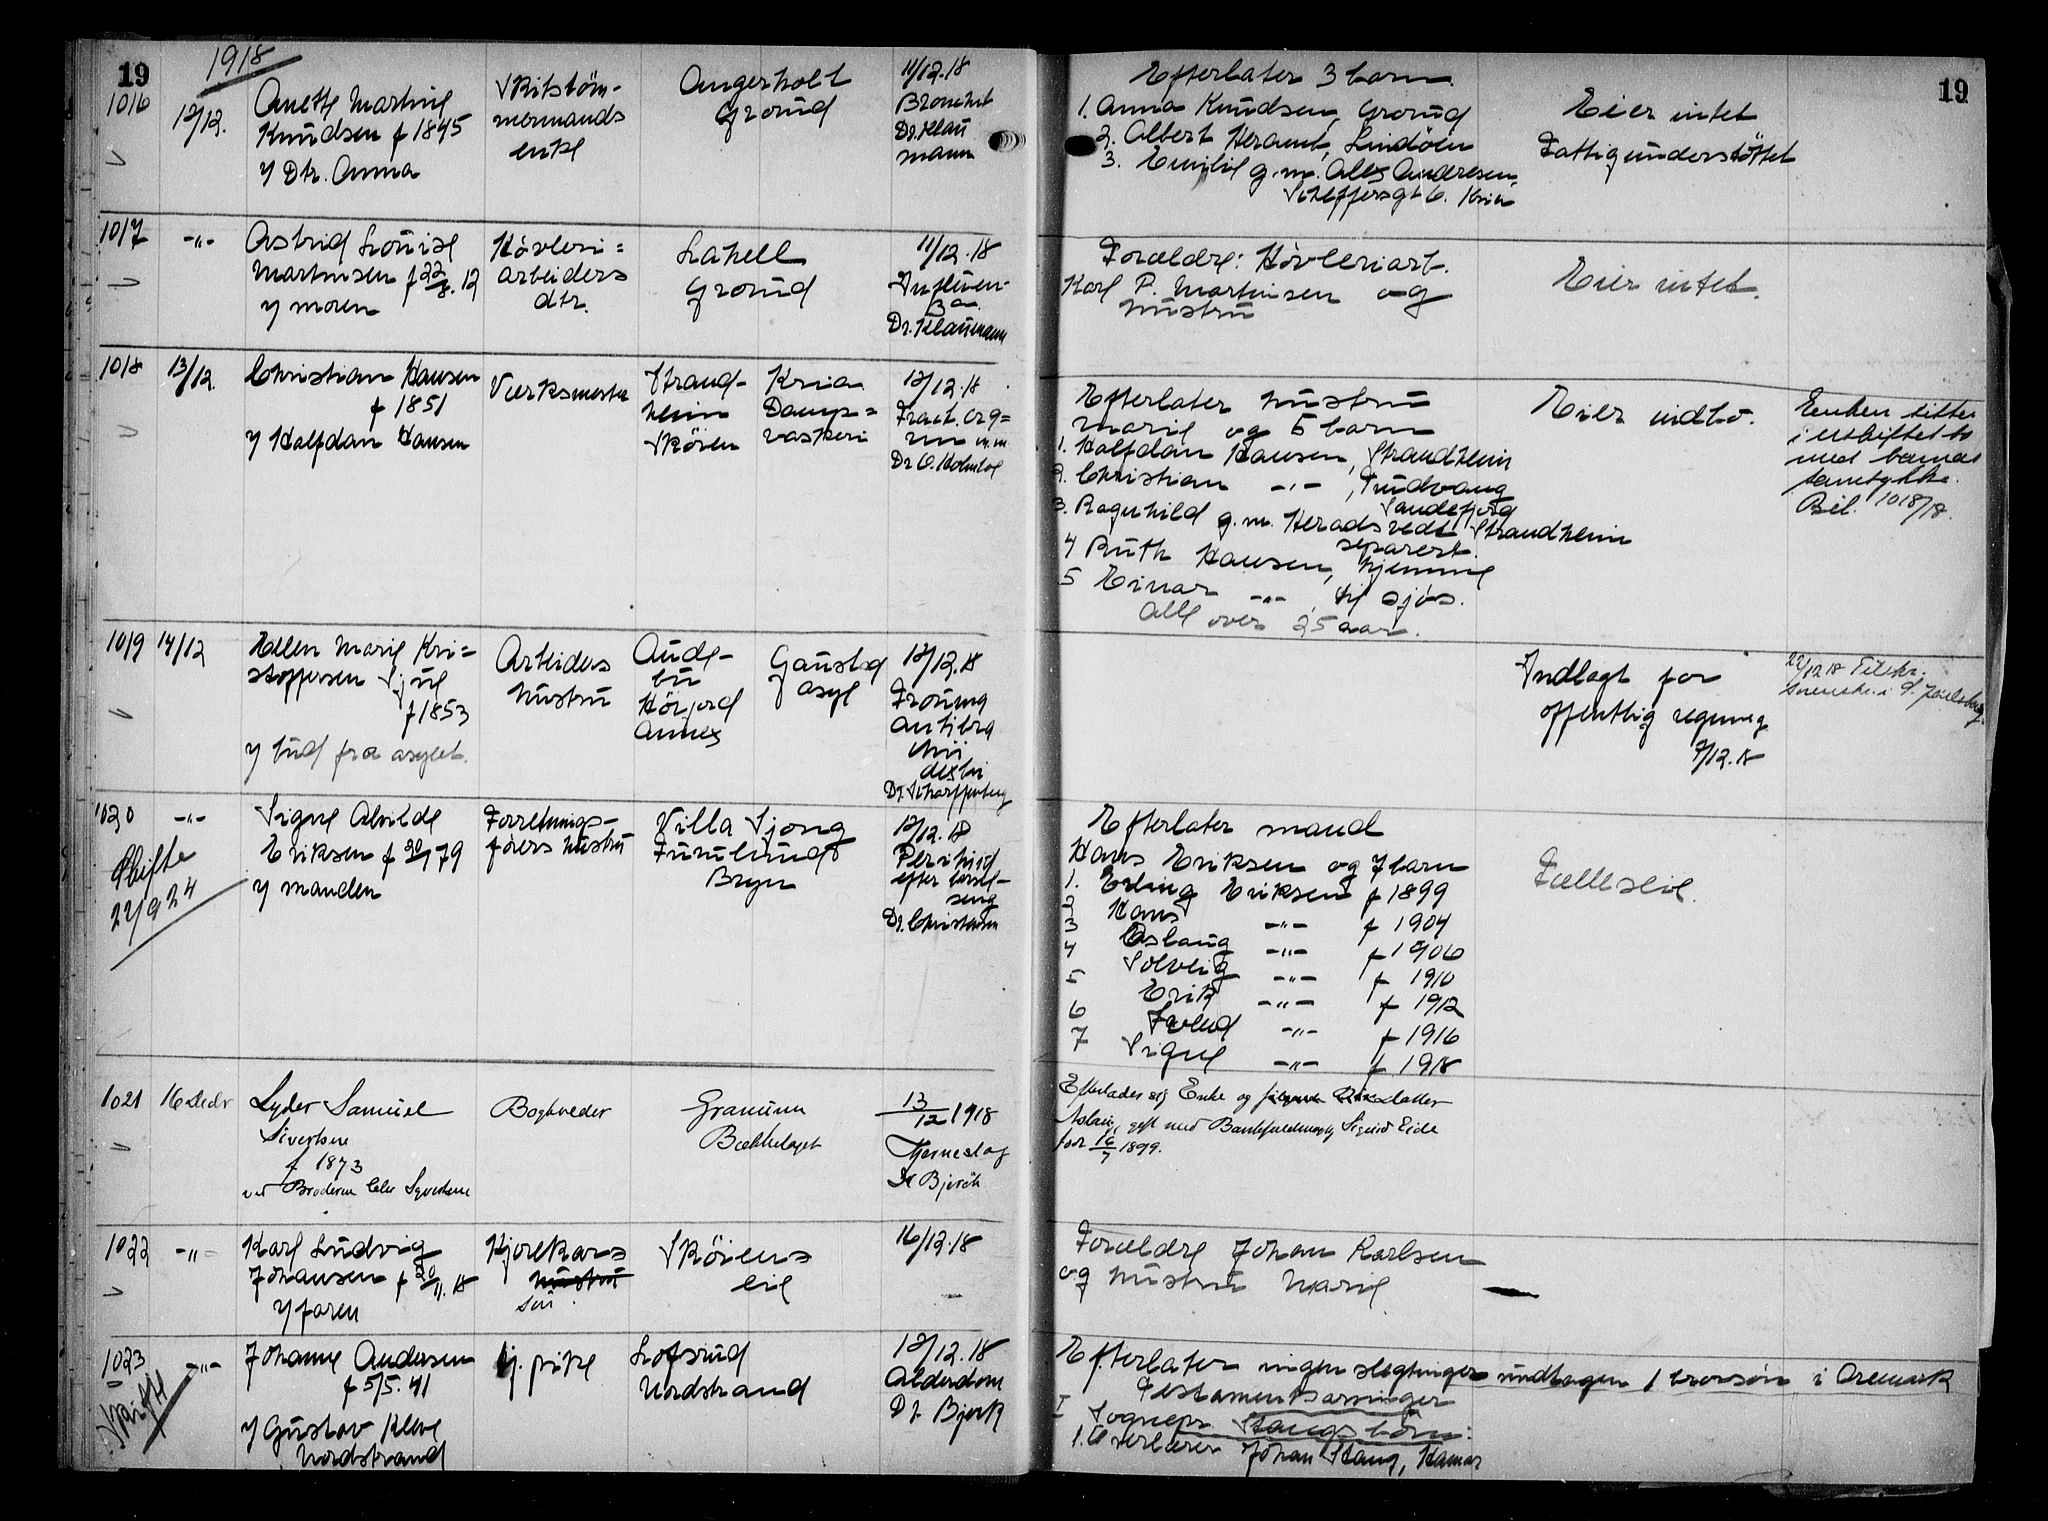 19
1918
1016
12/12.
Anette Martine
Knudsen f 1845
v/ Dtr. Anna
Skibstøm-
mermands
enke
Angerholt
Grorud
11/12.18
Bronchit
Dr. Klau
mann
1017
-"-
Astrid Lovise
Martinsen f 22/8.12
v/ moren
Høvleri=
arbeiders
dtr.
Lakell
Grorud
11/12.18
Influen-
za
Dr. Klaumann
1018
13/12.
Christian Hansen
f 1851
v/ Halfdan Hansen
Værksmester
Strand-
heim
Skøien
Kria
Damp=
vaskeri
12/12.18
Fract. org=
m.m
Dr O. Holmboe
1019
14/12
Ellen Marie Kri=
stoffersen Sjue
f 1853
v/ bud fra asylet.
Arbeiders
hustru
Aude-
bu
Høijord
Annex
Gaustad
asyl
12/12.18
Dr. Scharffenberg
1020
-"-
Skifte
22/9 24
Signe Alvilde
Eriksen f 20/1 79
v/ manden
Forretnings-
førers hustru
Villa Sjong
Furulund
Bryn
12/12.18
efter barsel-
seng
Dr. Christensen
1021
16 Decbr
Lyder Samuel
Sivertsen
f 1873
ved Broderen Syvertsen
Boghveder
Granum
Bækkelaget
13/12 1918
Hjerneslag
Dr Bjerck
1022
-"-
Karl Ludvig
Johansen f 20/11.18
v/ faren
Kjørekars
hustru
søn
Skøiens
eie
16/12.18
1023
-"-
Skifte
Johanne Andersen
f 5/5.41
v/ Gustav Kleve
Nordstrand
Tj. pike
Lofsrud
Nordstrand
12/12.18
Alderdom
Dr. Bjerk
19
Efterlater 3 barn
1. Anna Knudsen, Grorud
2. Albert Lindøen
3. Emilie g.m. Alex Andresen,
Steffensgt 6. Kria
Eier intet
Fattigunderstøttet
Forældre: Høvleriarb.
Karl P. Martinsen og
hustru
Eier intet.
Efterlater hustru
Marie og 5 barn
1. Halfdan Hansen, Strandheim
2. Christian -"-, Trudvang
Sandefjord
3. Ragnhild g.m. Heradsvedt Strandheim
separert.
4 Ruth Hansen, hjemme
5 Einar -"- til sjøs.
Alle over 25 aar.
Eier indbo.
Enken sitter
i uskiftet bo
med barnas
samtykke.
Bil. 1018/18.
Indlagt for
offentlig regning
7/12.18
i S. Jarlsberg
Efterlater mand
Hans Eriksen og 7 barn
1. Erling Eriksen f 1899
2 Hans -"- f 1904
3 Aslaug -"- f 1906
4 Solveig -"- f 1910
5 Erik -"- f 1912
6 Svend -"- f 1916
7 Signe -"- f 1918
Fælleseie.
Efterlader sig Enke og datter
Aslaug, gift med Bankfuldmægtig Sigurd Eide
født 16/7 1899.
Forældre Johan Karlsen
og hustru Marie
Efterlater ingen slegtninger undtagen 1 brorsøn i Aremark
Testamentsarvinger
I Sognepr. Stangs børn:
1. Overlærer Johan Stang, Hamar